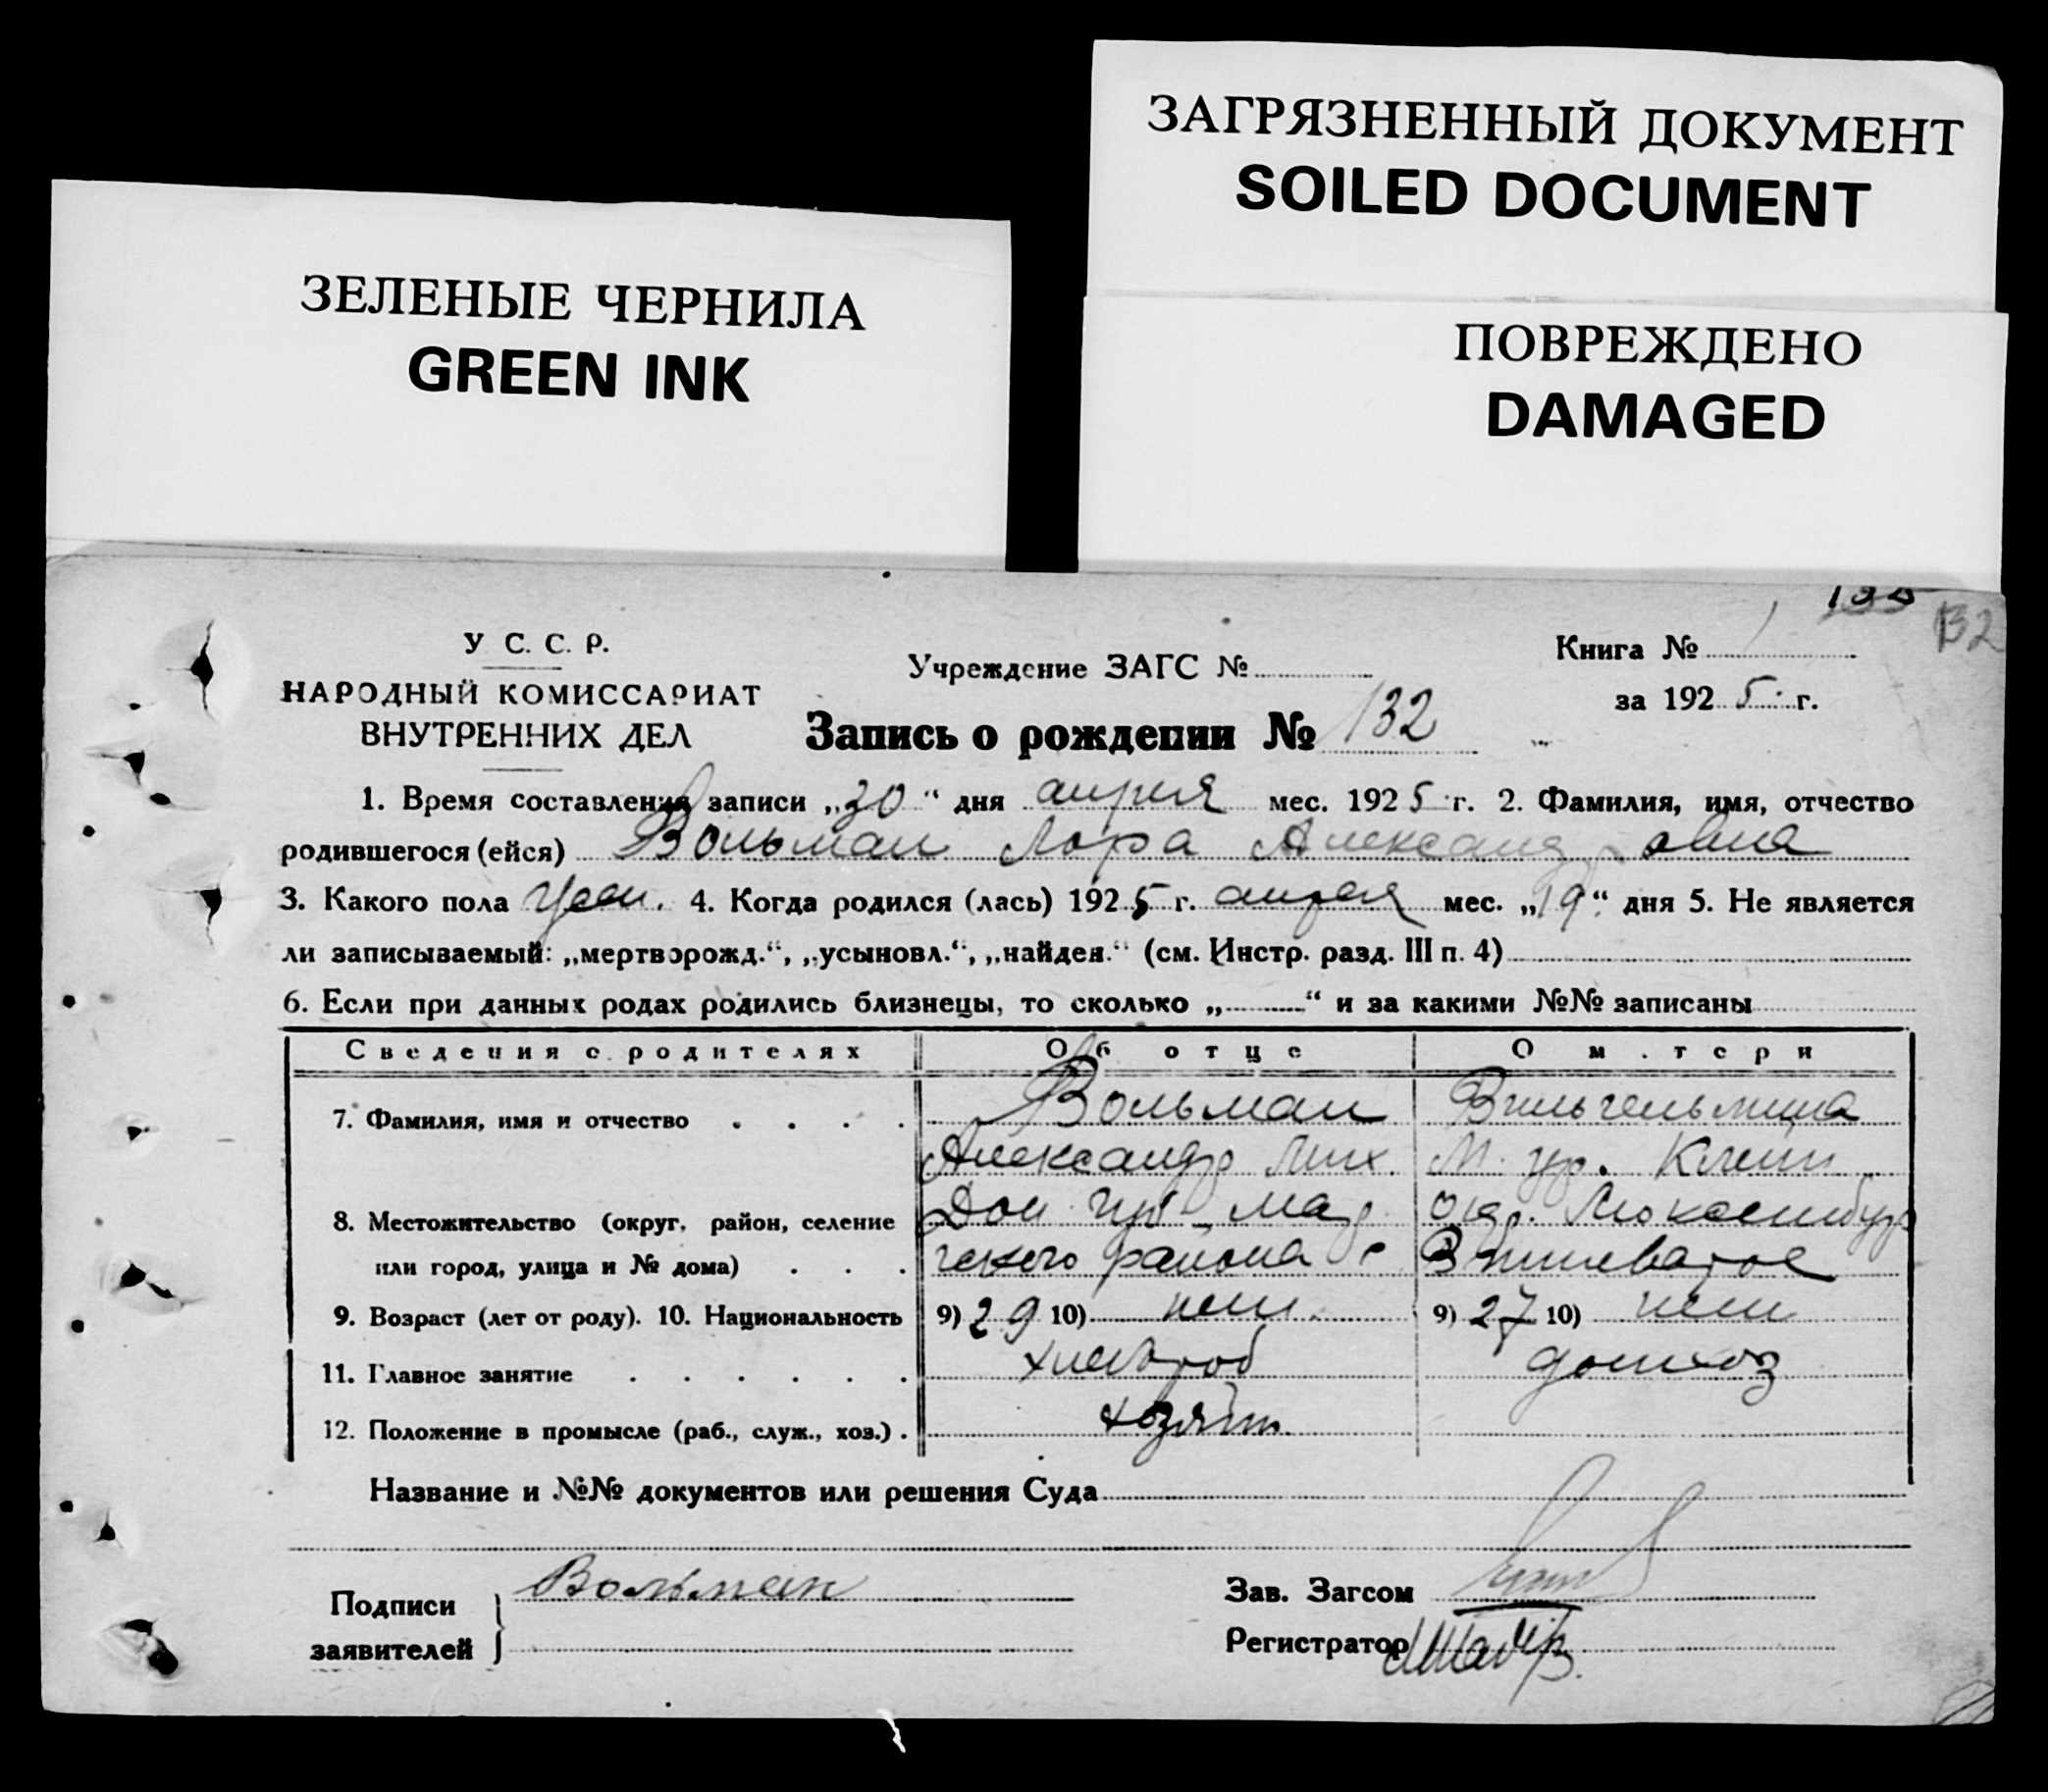 ЗАГРЯЗНЕННЫЙ ДОКУМЕНТ
SOILED DOCUMENT
ЗЕЛЕНЫЕ ЧЕРНИЛА
GREEN INK
ПОВРЕЖДЕНО
DAMAGED
132
У С. С. Р.
НАРОДНЫЙ КОМИССАРИАТ
ВНУТРЕННИХ ДЕЛ
Учреждение ЗАГС №
Книга №
за 1925 г.
Запись о рождении № 132
1. Время составления записи „30“ дня апреля мес. 1925 г. 2. Фамилия, имя, отчество
родившегося (ейся) Вольман Лора Александровна
3. Какого пола жен. 4. Когда родился (лась) 1925 г. апреля мес. „19“ дня 5. Не является
ли записываемый: „мертворожд.“, „усыновл.“, „найден.“ (см. Инстр. разд. III п. 4)
6. Если при данных родах родились близнецы, то сколько „ “ и за какими №№ записаны
Сведения о родителях Об отце О м.тери
7. Фамилия, имя и отчество Вольман Вильгельмина
Александр Мих. М. ур. Клейн
8. Местожительство (округ, район, селение Дон губ Мар. окр. Люксембург
или город, улица и № дома) ского района с
9. Возраст (лет от роду). 10. Национальность 9) 29 10) нем. 9) 27 10) нем
11. Главное занятие хлебороб домхоз
12. Положение в промысле (раб., служ., хоз.) хозяин
Название и №№ документов или решения Суда
Подписи заявителей Вольман
Зав. Загсом
Регистратор